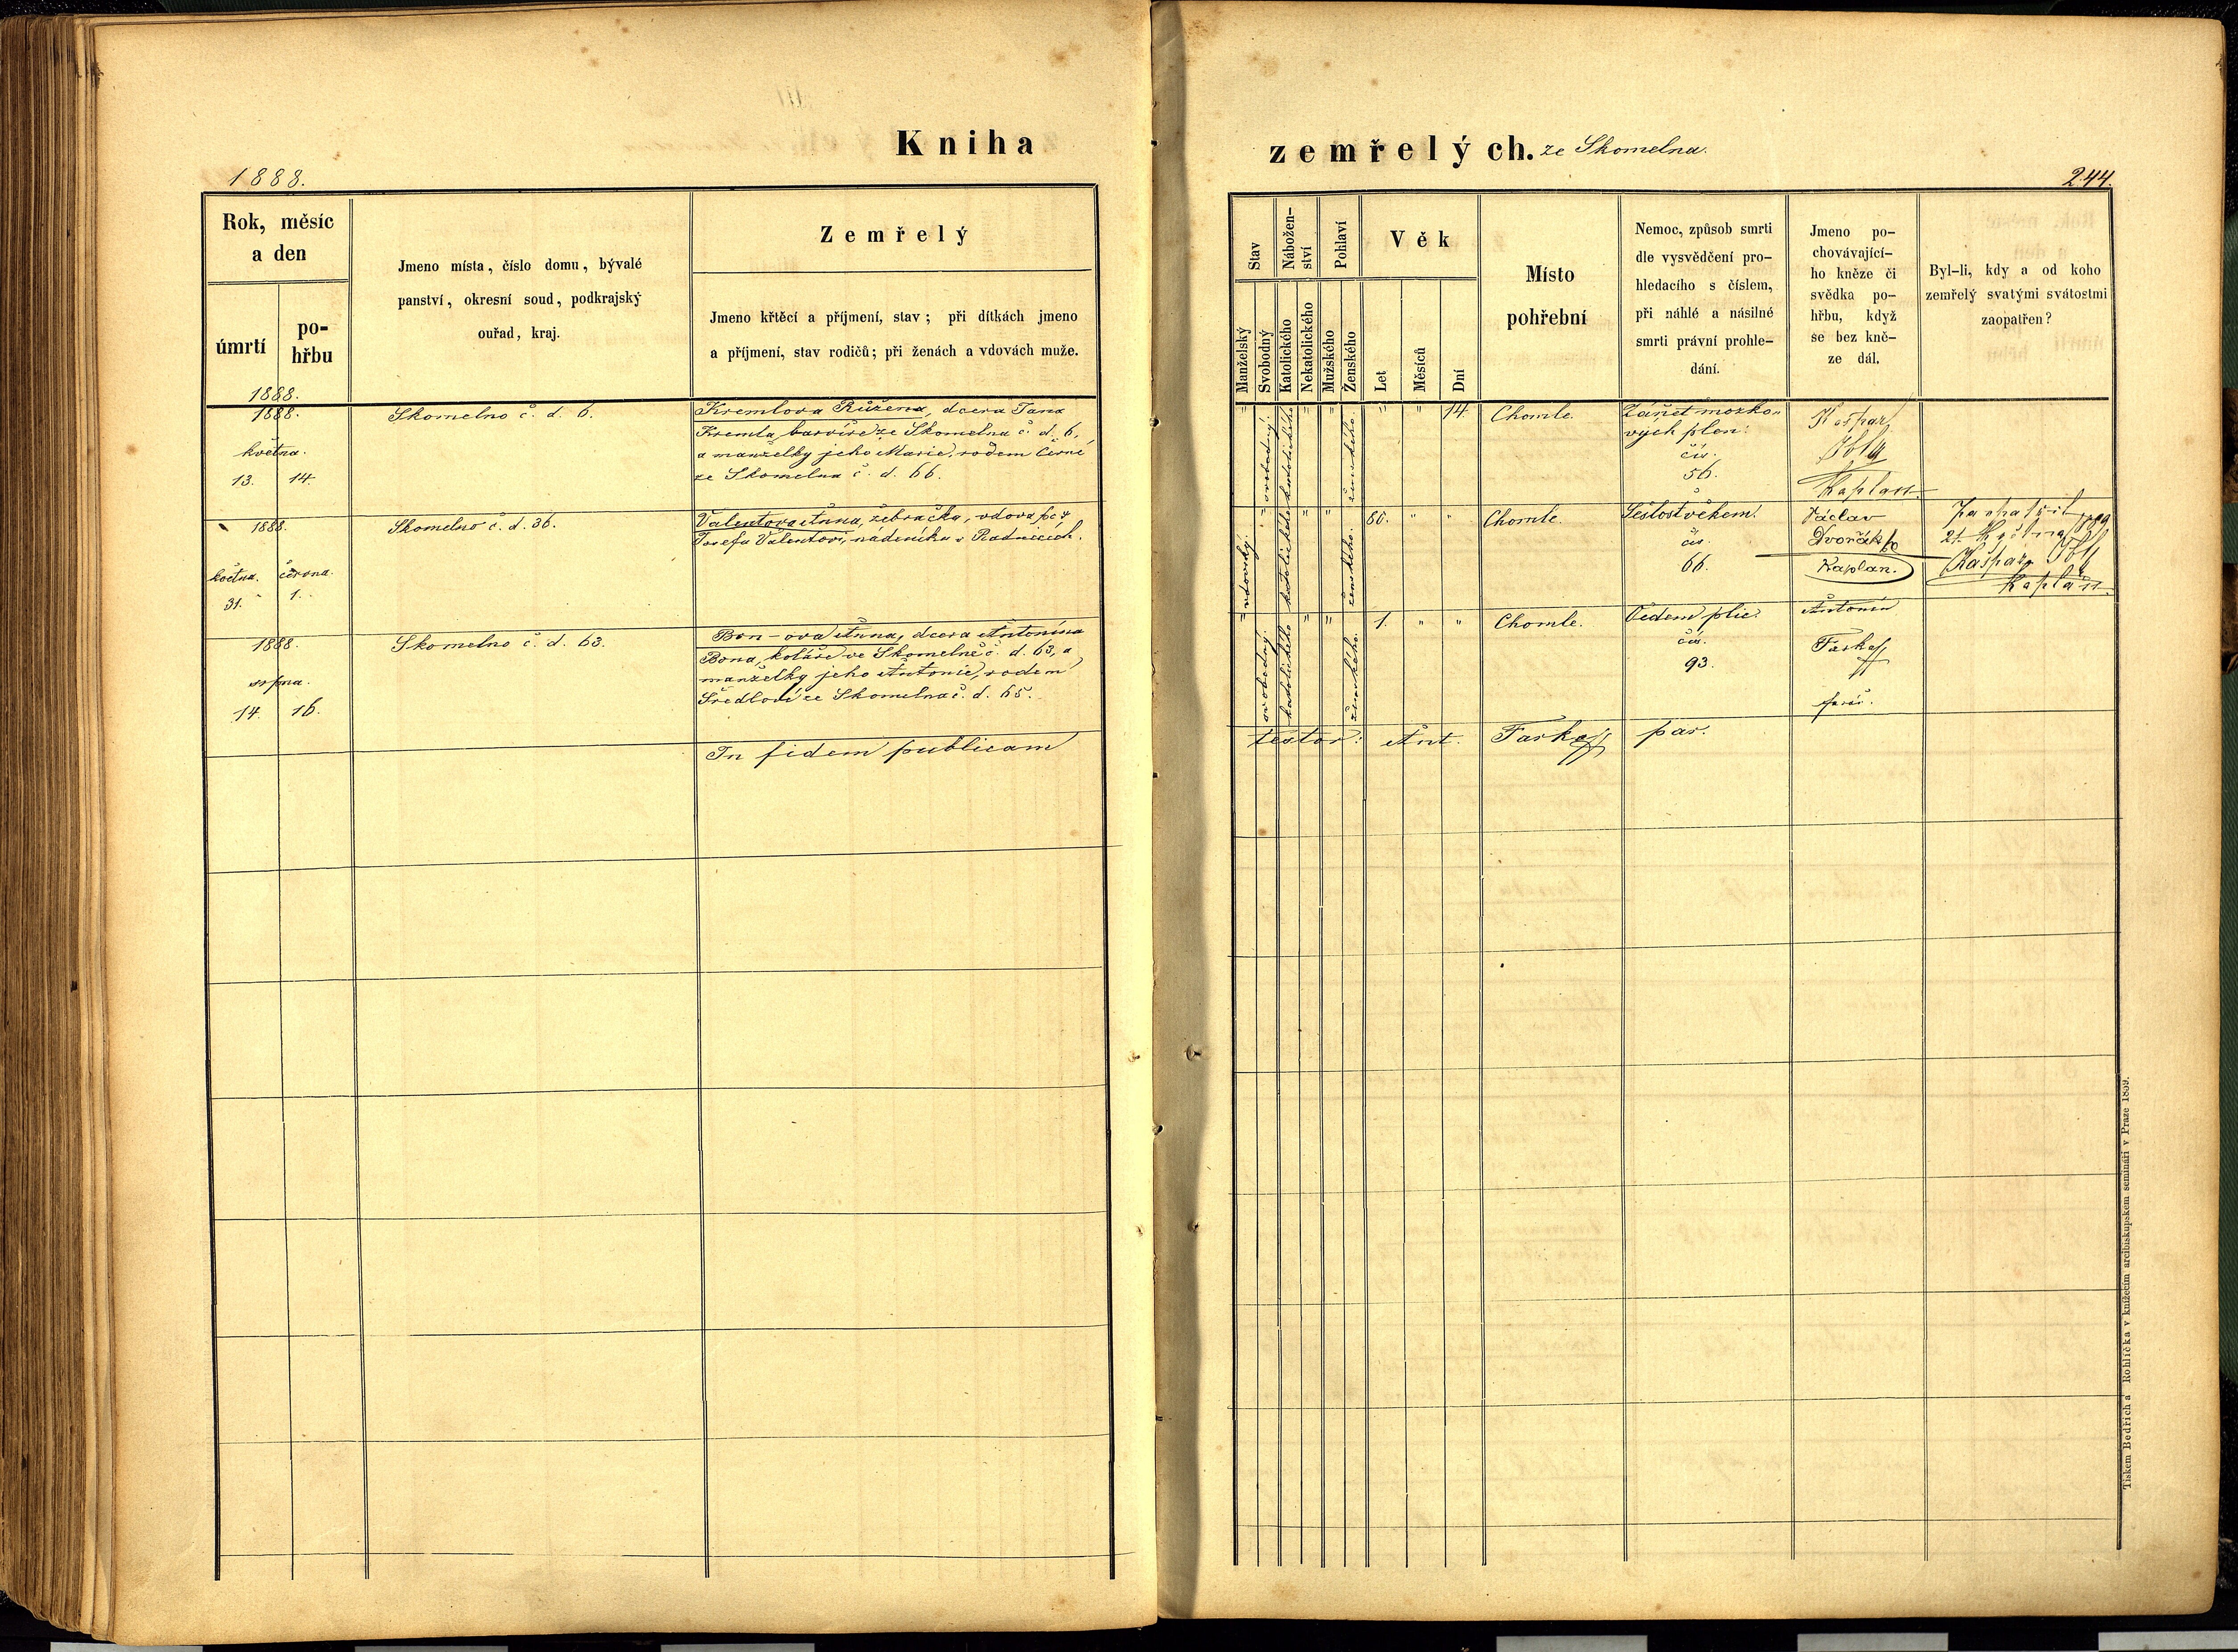 Kniha
1888.
Rok, měsíc
a den
úmrtí
po-
hřbu
Jmeno místa, číslo domu, bývalé
panství, okresní soud, podkrajský
ouřad, kraj.
Zemřelý
Jmeno křtěcí a příjmení, stav; při dítkách jmeno
a příjmení, stav rodičů; při ženách a vdovách muže.
1888.
1888.
května.
13. 14.
Skomelno č. d. 6.
Kremlova Růžena, dcera Jana
Kremla, barvíře ze Skomelna č. d. 6,
a manželky jeho Marie, rodem Černé
ze Skomelna č. d. 66.
1888.
května. června.
31. 1.
Skomelno č. d. 36.
Valentova Anna, žebračka, vdova po
Josefu Valentovi, nádeníku v Radnicích.
1888.
srpna.
14. 16.
Skomelno č. d. 63.
Bon-ova Anna, dcera Antonína
Bona, koláře ve Skomelně č. d. 63, a
manželky jeho Antonie, rodem
ze Skomelna č. d. 65.
In fidem publicam
zemřelých. ze Skomelna.
244.
Stav
Manželský
Svobodný
Nábožen-
ství
Katolického
Nekatolického
Pohlaví
Mužského
Ženského
Věk
Let
Měsíců
Dní
Místo
pohřební
Nemoc, způsob smrti
dle vysvědčení pro-
hledacího s číslem,
při náhlé a násilné
smrti právní prohle-
dání.
Jmeno po-
chovávající-
ho kněze či
svědka po-
hřbu, když
se bez kně-
ze dál.
Byl-li, kdy a od koho
zemřelý svatými svátostmi
zaopatřen?
" svobodný. katolického " " ženského. " " 14.
Chomle.
Zánět mozko-
vých plen:
čís.
56.
Kašpar
Kaplan
" vdovský. katolického " " ženského. 80. " "
Chomle.
Sešlost věkem.
čís.
66.
Václav
Dvořák
Kaplan.
Zaopatřil
21. května
Kašpar
kaplan.
" svobodný. katolického " " ženského. 1. " "
Chomle.
Vědem plic.
čís.
93.
Antonín
Taska
farář.
testor: Ant. Taska par.
Tiskem Bedřicha Rohlíčka v knížecím arcibiskupském semináři v Praze 1859.